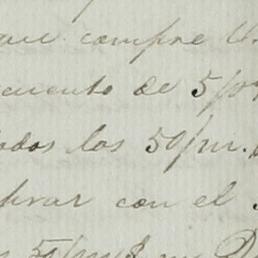 que compre U
cuento de 5/m
odos los 50/m.
brar con el
50/m